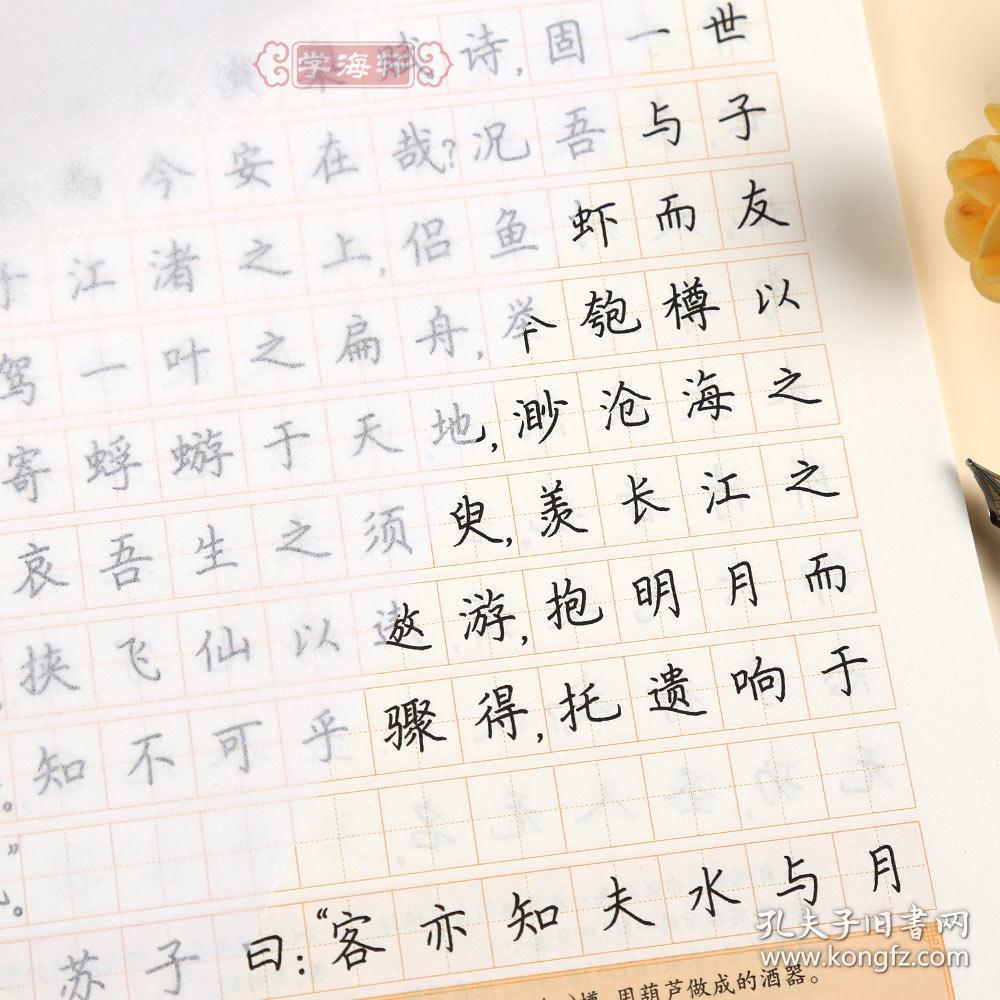 学海轩
赋诗，固一世
今安在哉？况吾与子
于江渚之上，侣鱼虾而友
驾一叶之扁舟，举匏樽以
寄蜉蝣于天地，渺沧海之
哀吾生之须臾，羡长江之
挟飞仙以遨游，抱明月而
知不可乎骤得，托遗响于
。”
苏子曰：“客亦知夫水与月
樽，用葫芦做成的酒器。
孔夫子旧书网
www.kongfz.com